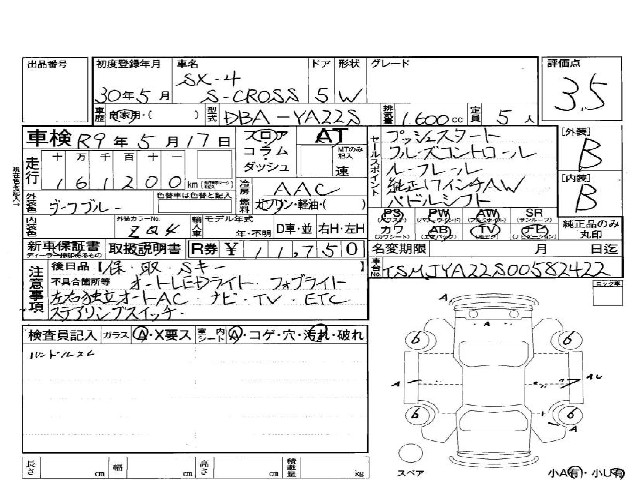 出品番号 初度登録年月 車名 ドア 形状 グレード 評価点
SX-4
30年5月 S-CROSS 5 W 3.5
車歴 自家用・( ) 型式 DBA-YA22S 排気量 1,600cc 定員 5人
車検 R9年5月17日 フロア コラム ダッシュ AT MTのみ記入 速
セールスポイント プッシュスタート
クルーズコントロール
ルーフレール
純正17インチAW
パドルシフト
[外装] B
[内装] B
走行 十万千百十一
161200km
冷房 AAC
燃料 ガソリン・軽油・( )
外装色 色替車は色替と記入
PS PW AW SR
カワ AB TV ナビ
純正品のみ丸印
内装色 外装カラーNo. ZQ4 輸入車 モデル年式 年・不明 D車・並 右H・左H
新車保証書 取扱説明書 R券 ¥11,750 名変期限 月 日迄
注意事項 後日品 保・取・Sキー 車台No. TSMJYA22S00582422
不具合箇所等 オートLEDライト・フォグライト
左右独立オートAC・ナビ・TV・ETC
ステアリングスイッチ
検査員記入 ガラス A・X要ス 室内シート A・コゲ・穴・汚れ・破れ
ハンドルスレ
A
6 6
A A
6 6
A
長さ cm 幅 cm 高さ cm 積載量 kg
スペア 小A有・小U有